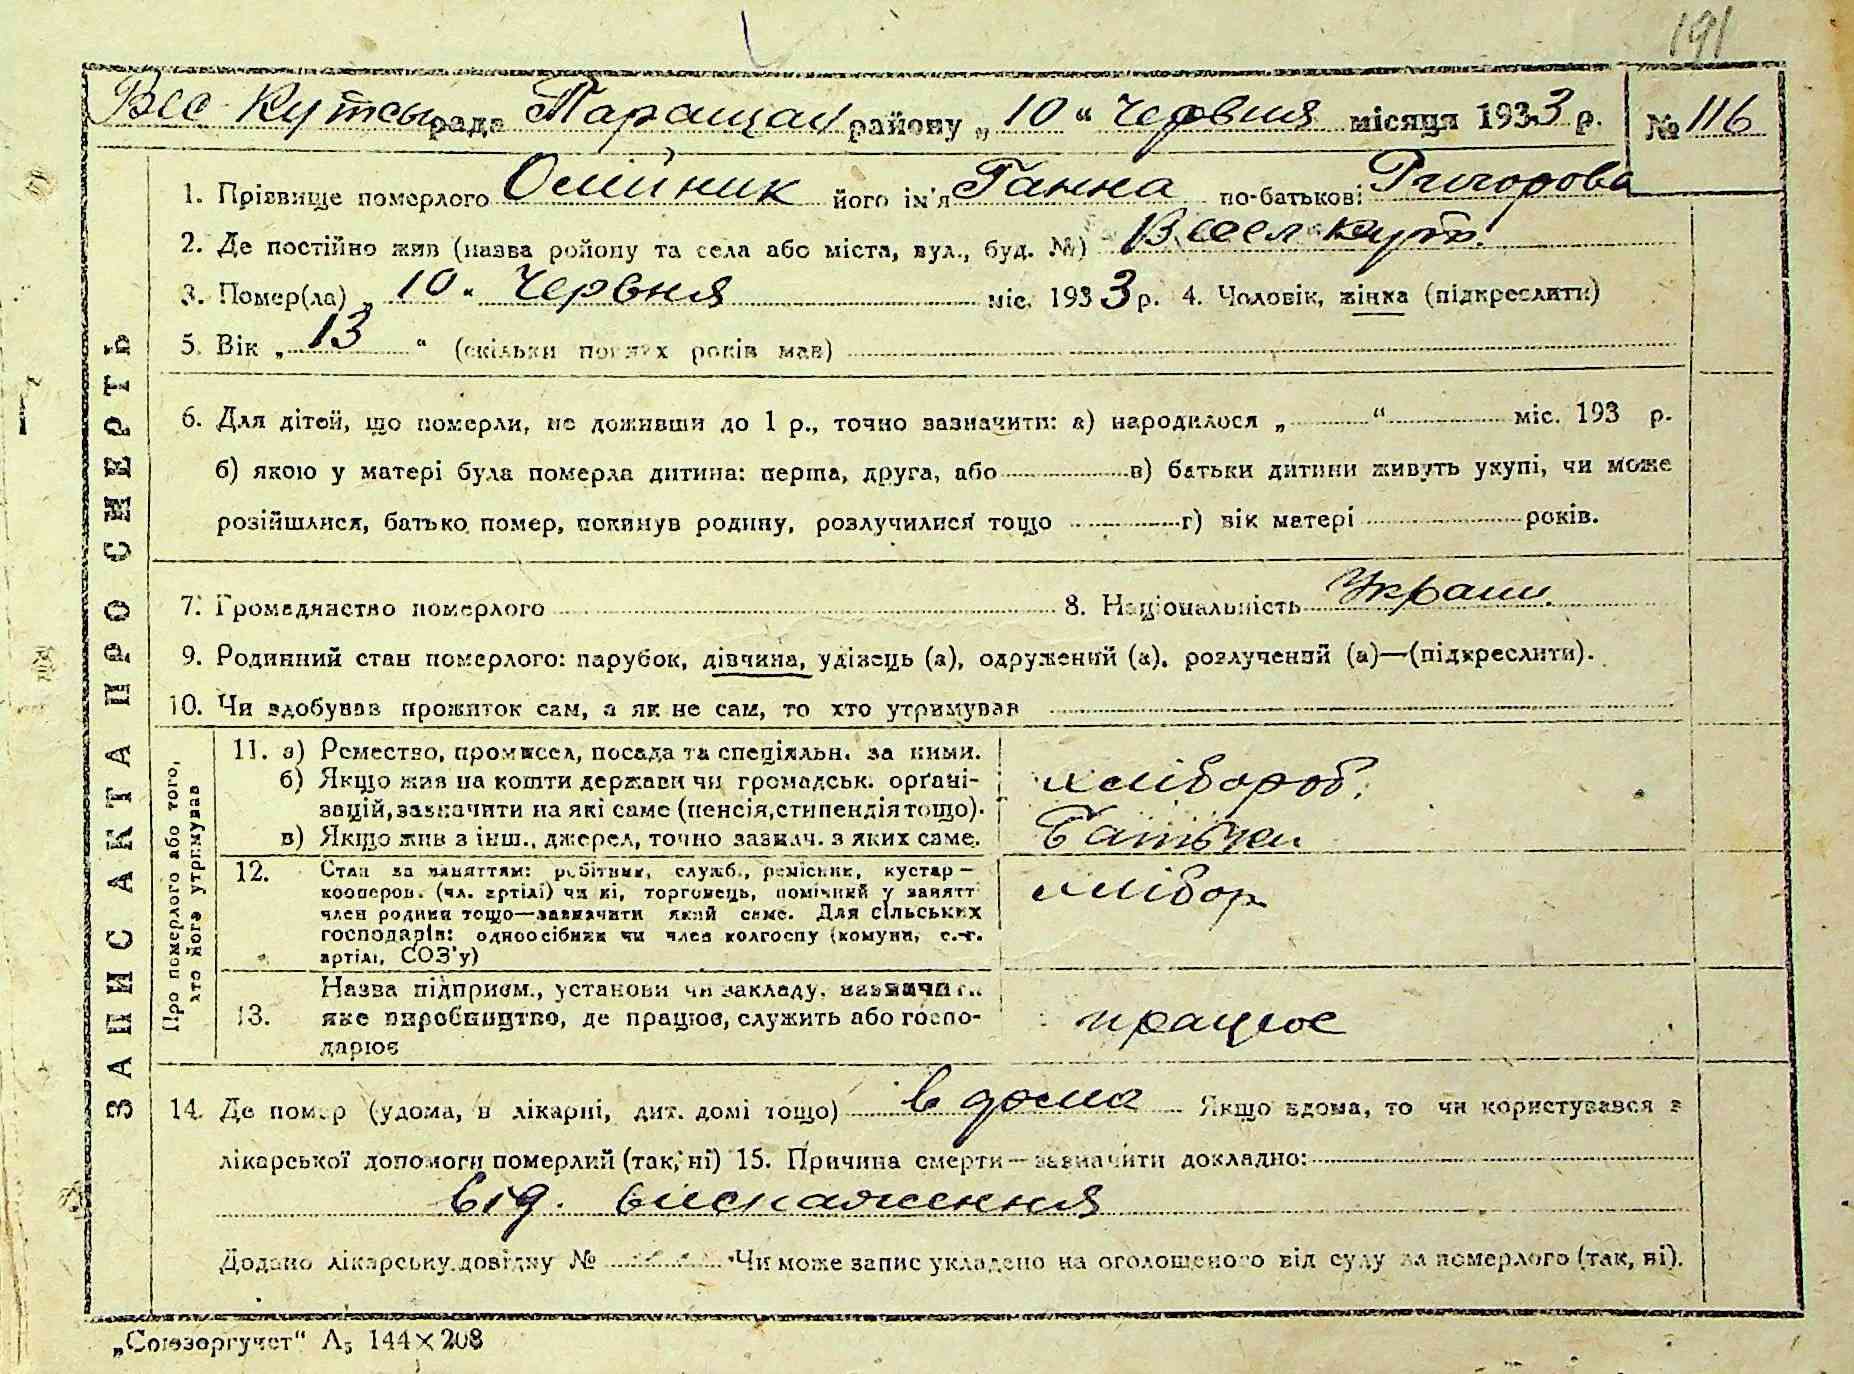 191
Вес Кутсы рада Таращан району „ 10 “ Червня місяця 1933 р. № 116
1. Прізвище померлого Олійник його ім'я Ганна по-батькові Ригорова
2. Де постійно жив (назва ройону та села або міста, вул., буд. №) Весел Кут.
3. Помер(ла) „ 10 „ Червня міс. 1933 р. 4. Чоловік, жінка (підкреслити)
5. Вік „ 13 “ (скільки повних років мав)
6. Для дітей, що померли, не доживши до 1 р., точно зазначити: а) народилося „ “ міс. 193 р.
б) якою у матері була померла дитина: перша, друга, або в) батьки дитини живуть укупі, чи може
розійшлися, батько помер, покинув родину, розлучилися тощо г) вік матері років.
7. Громадянство померлого 8. Національність Україн.
9. Родинний стан померлого: парубок, дівчина, удівець (а), одружений (а), розлучений (а)—(підкреслити).
10. Чи здобував прожиток сам, а як не сам, то хто утримував
ЗАПИС АКТА ПРО СМЕРТЬ
Про померлого або того,
хто його утримував
11. а) Ремество, промисел, посада та спеціяльн. за ними.
б) Якщо жив на кошти держави чи громадськ. органі-
зацій, зазначити на які саме (пенсія, стипендія тощо).
в) Якщо жив з інш., джерел, точно зазнач. з яких саме.
хлібороб.
Батьки
12. Стан за заняттям: робітник, служб., ремісник, кустар—
кооперов. (чл. артілі) чи ні, торговець, помічний у занятті
член родини тощо—зазначити який саме. Для сільських
господарів: одноосібник чи член колгоспу (комуни, с.-г.
артілі, СОЗ'у)
хлібор
13. Назва підприєм., установи чи закладу, зазначити
яке виробництво, де працює, служить або госпо-
дарює
працює
14. Де помер (удома, в лікарні, дит. домі тощо) в дома Якщо вдома, то чи користувався з
лікарської допомоги померлий (так, ні) 15. Причина смерти—зазначити докладно:
від. виснаження
Додано лікарську довідку № Чи може запис укладено на оголошеного від суду за померлого (так, ні).
„Союзоргучет“ А5 144×208